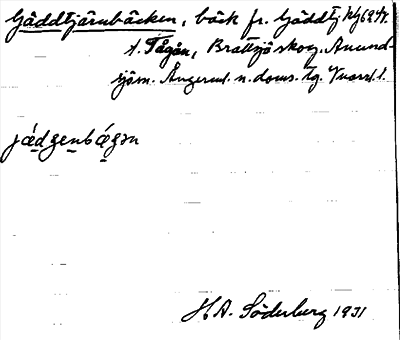 Gäddtjärnbäcken, bäck fr. Gäddtj.
t. Tågån, Brattsjö skog, Anund-
sjöm. Ångerml. n. doms. tg.
jǽdgenbǽgən
H.A. Söderberg 1931